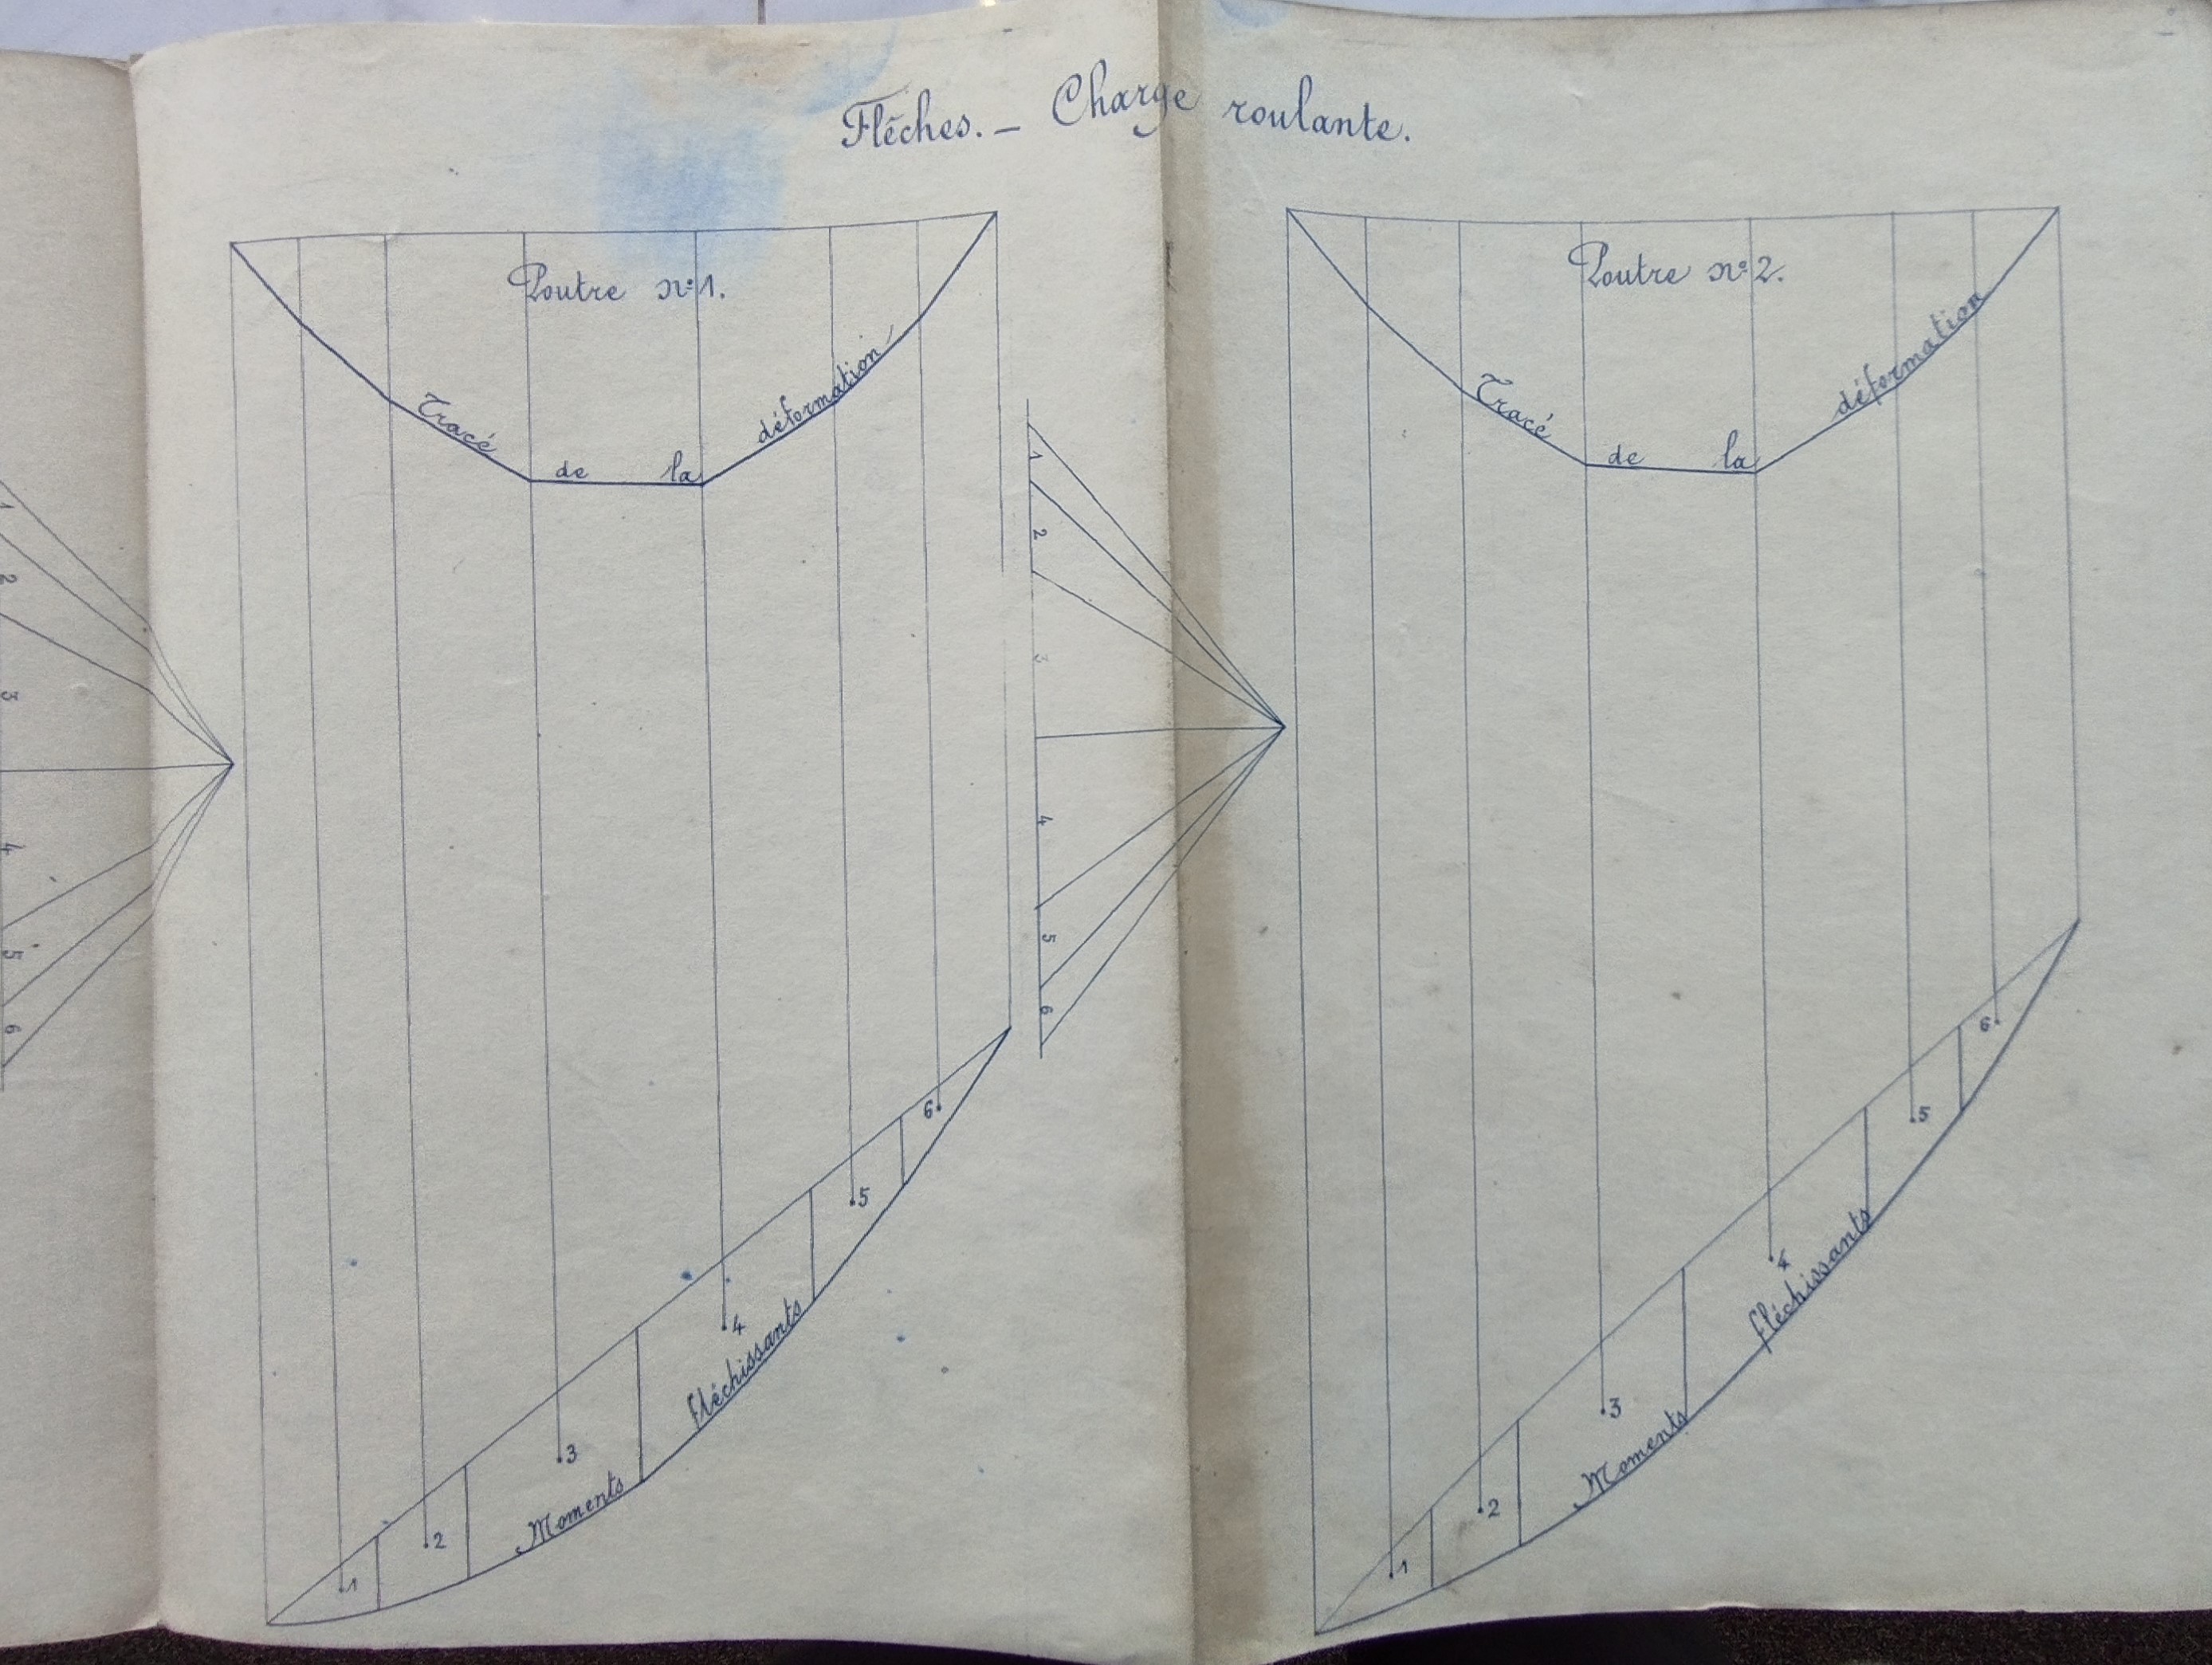 Flèches. — Charge roulante.
1
2
3
4
5
6
Poutre nº 1.
Tracé de la déformation
1
2
3
4
5
6
Moments fléchissants
1
2
3
4
5
6
Poutre nº 2.
Tracé de la déformation
1
2
3
4
5
6
Moments fléchissants